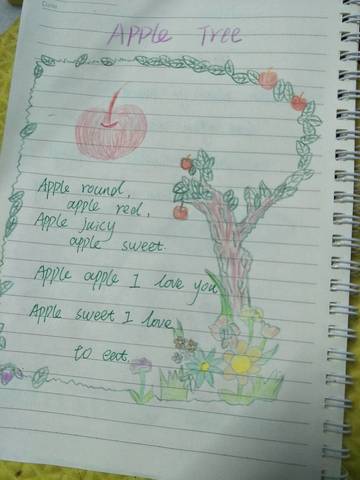 Date
Apple Tree
Apple round,
apple red,
Apple juicy
apple sweet.
Apple apple I love you
Apple sweet I love
to eat.